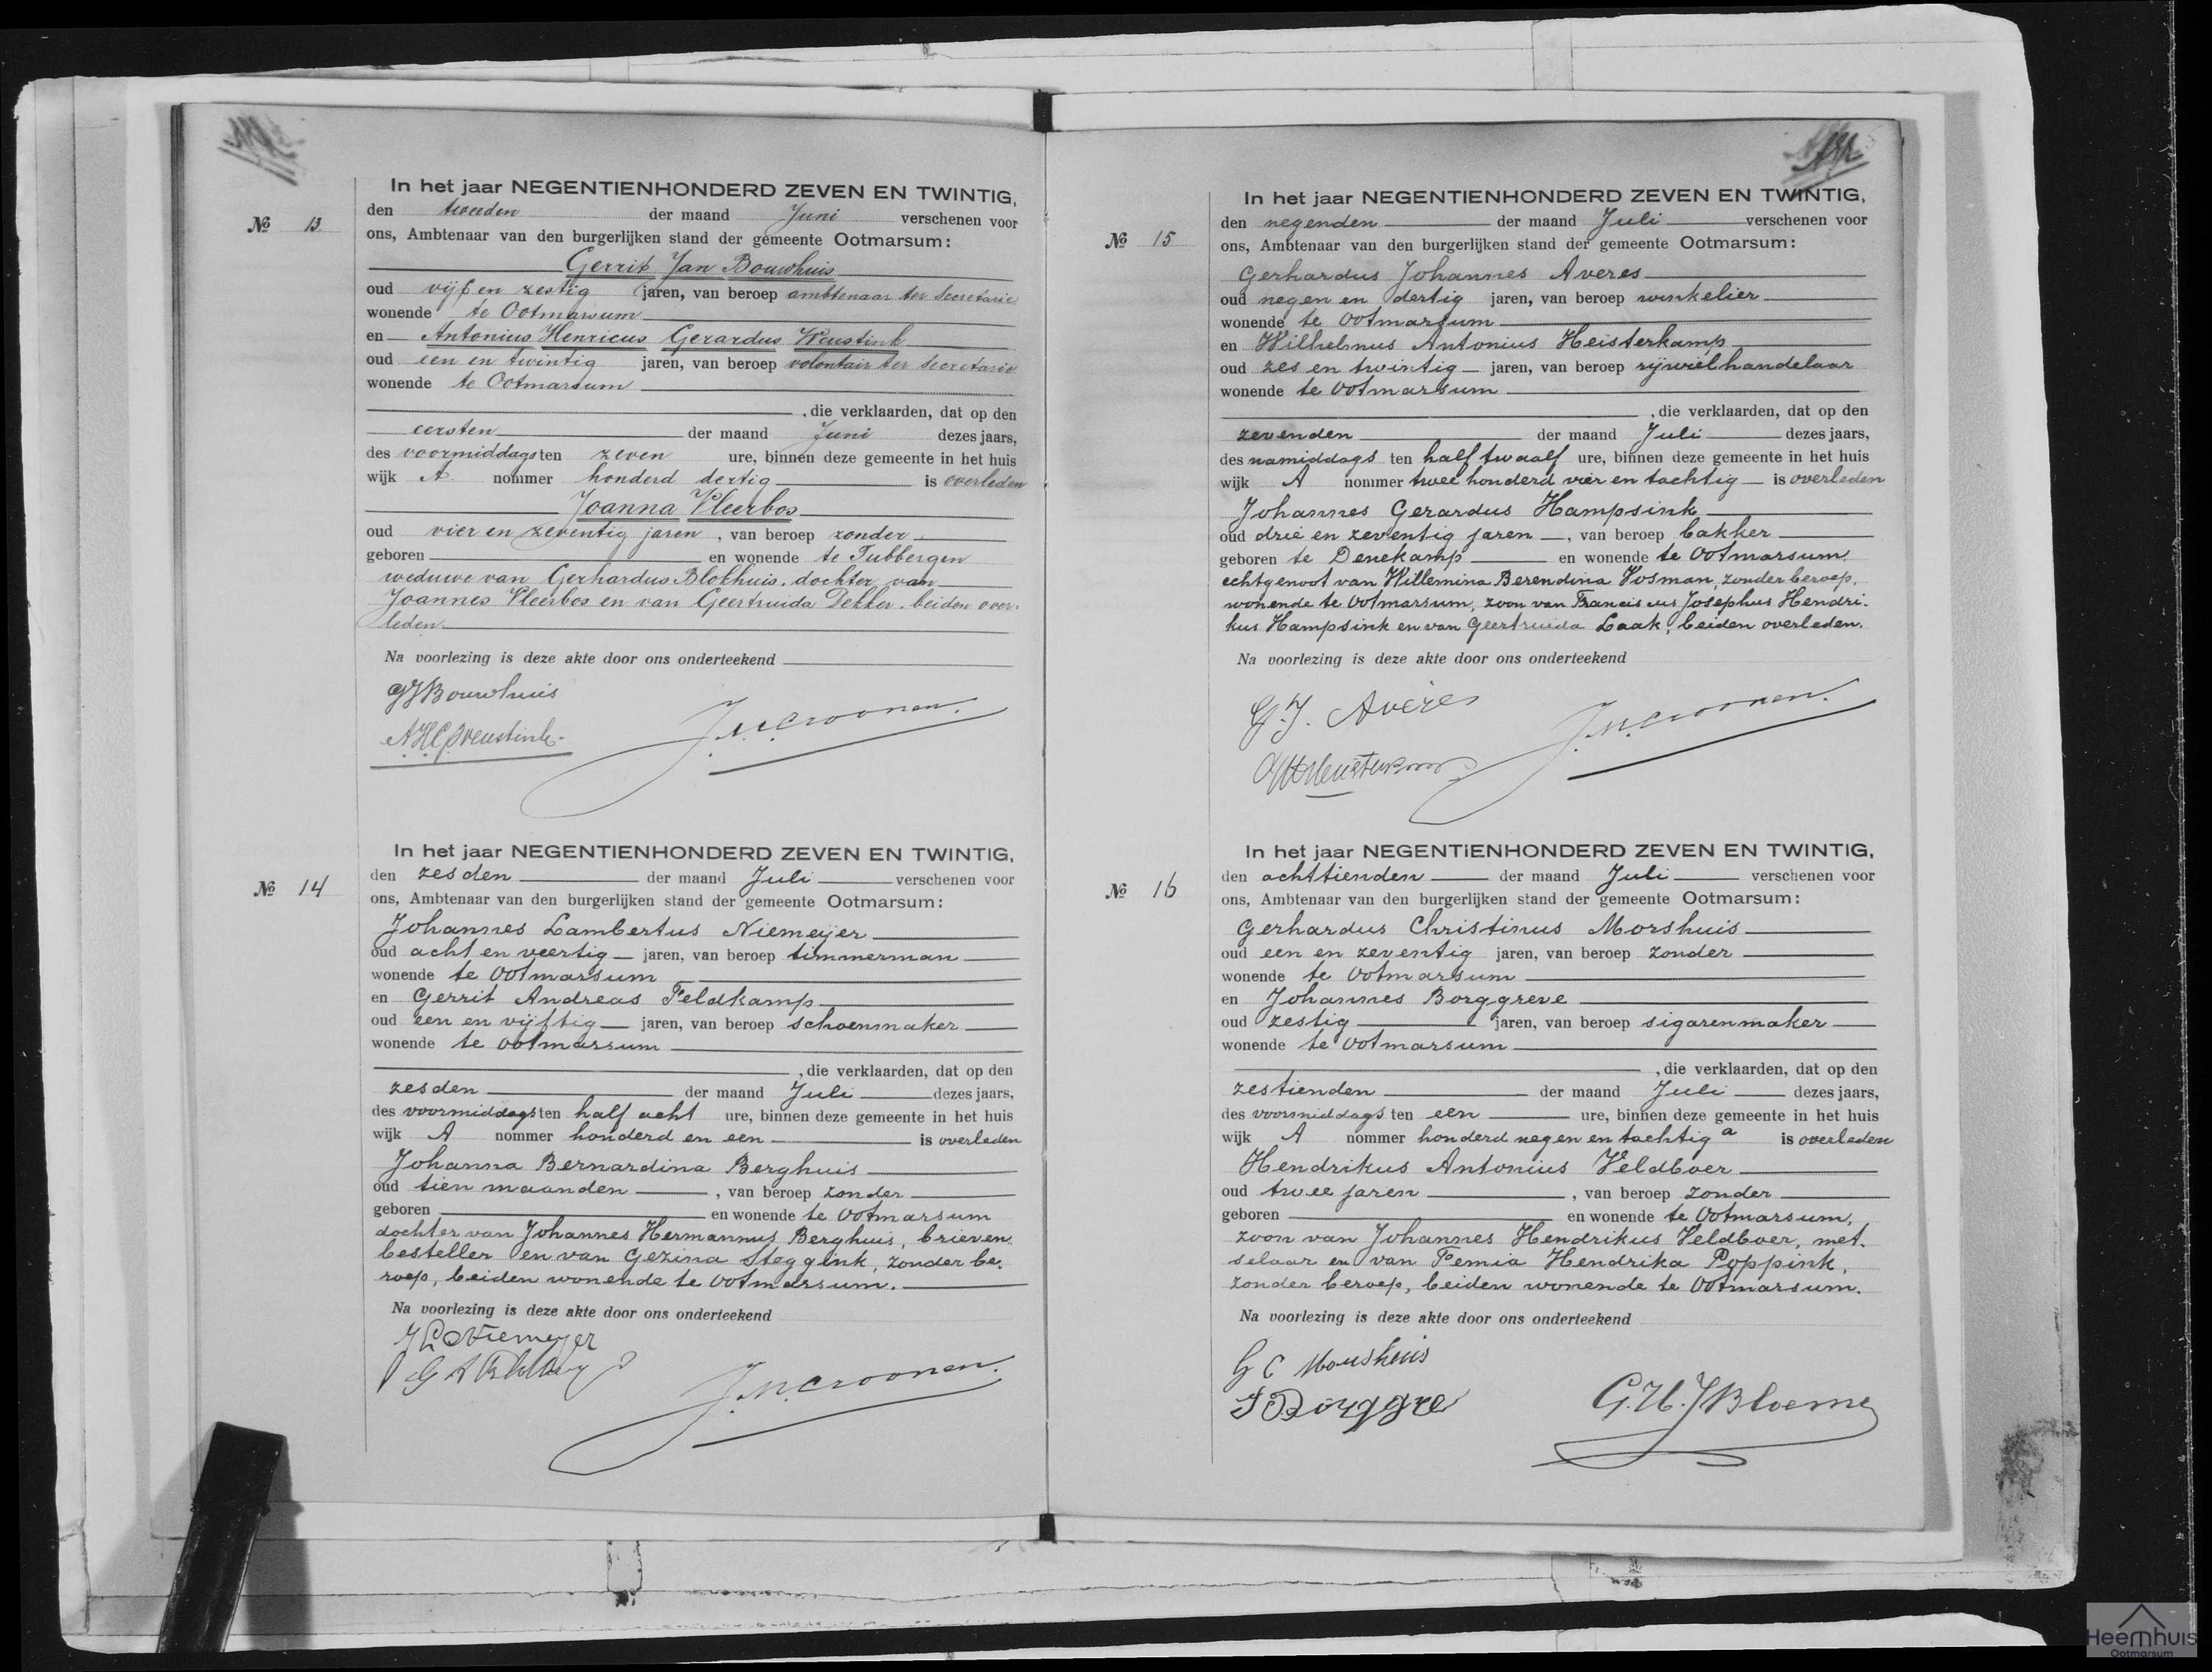 In het jaar NEGENTIENHONDERD ZEVEN EN TWINTIG,
den tweeden der maand Juni verschenen voor
№ 13
ons, Ambtenaar van den burgerlijken stand der gemeente Ootmarsum:
Gerrit Jan Bouwhuis
oud vijf en zestig jaren, van beroep ambtenaar ter secretarie
wonende te Ootmarsum
en Antonius Henricus Gerardus Weustink
oud een en twintig jaren, van beroep volontair ter secretarie
wonende te Ootmarsum
, die verklaarden, dat op den
eersten der maand Juni dezes jaars,
des voormiddags ten zeven ure, binnen deze gemeente in het huis
wijk A nommer honderd dertig is overleden
Joanna Vleerbos
oud vier en zeventig jaren, van beroep zonder
geboren en wonende te Tubbergen
weduwe van Gerhardus Blokhuis, dochter van
Joannes Vleerbos en van Geertruida Dekker, beiden over-
leden.
Na voorlezing is deze akte door ons onderteekend
GJBouwhuis
AHGWeustink
J.M.Croonen.
In het jaar NEGENTIENHONDERD ZEVEN EN TWINTIG,
den zesden der maand Juli verschenen voor
№ 14
ons, Ambtenaar van den burgerlijken stand der gemeente Ootmarsum:
Johannes Lambertus Niemeijer
oud acht en veertig jaren, van beroep timmerman
wonende te Ootmarsum
en Gerrit Andreas Feldkamp
oud een en vijftig jaren, van beroep schoenmaker
wonende te Ootmarsum
, die verklaarden, dat op den
zesden der maand Juli dezes jaars,
des voormiddags ten half acht ure, binnen deze gemeente in het huis
wijk A nommer honderd en een is overleden
Johanna Bernardina Berghuis
oud tien maanden, van beroep zonder
geboren en wonende te Ootmarsum
dochter van Johannes Hermannus Berghuis, brieven-
besteller en van Gezina Steggink, zonder be-
roep, beiden wonende te Ootmarsum.
Na voorlezing is deze akte door ons onderteekend
J L Niemeyer
J.M.Croonen.
In het jaar NEGENTIENHONDERD ZEVEN EN TWINTIG,
den negenden der maand Juli verschenen voor
№ 15
ons, Ambtenaar van den burgerlijken stand der gemeente Ootmarsum:
Gerhardus Johannes Averes
oud negen en dertig jaren, van beroep winkelier
wonende te Ootmarsum
en Wilhelmus Antonius Heisterkamp
oud zes en twintig jaren, van beroep rijwielhandelaar
wonende te Ootmarsum
, die verklaarden, dat op den
zevenden der maand Juli dezes jaars,
des namiddags ten half twaalf ure, binnen deze gemeente in het huis
wijk A nommer twee honderd vier en tachtig is overleden
Johannes Gerardus Hampsink
oud drie en zeventig jaren, van beroep bakker
geboren te Denekamp en wonende te Ootmarsum,
echtgenoot van Willemina Berendina Vosman, zonder beroep,
wonende te Ootmarsum, zoon van Franciscus Josephus Hendri-
kus Hampsink en van Geertruida Laak, beiden overleden.
Na voorlezing is deze akte door ons onderteekend
G.J. Averes
J.M.Croonen.
In het jaar NEGENTIENHONDERD ZEVEN EN TWINTIG,
den achttienden der maand Juli verschenen voor
№ 16
ons, Ambtenaar van den burgerlijken stand der gemeente Ootmarsum:
Gerhardus Christinus Morshuis
oud een en zeventig jaren, van beroep zonder
wonende te Ootmarsum
en Johannes Borggreve
oud zestig jaren, van beroep sigarenmaker
wonende te Ootmarsum
, die verklaarden, dat op den
zestienden der maand Juli dezes jaars,
des voormiddags ten een ure, binnen deze gemeente in het huis
wijk A nommer honderd negen en tachtig a is overleden
Hendrikus Antonius Veldboer
oud twee jaren, van beroep zonder
geboren en wonende te Ootmarsum,
zoon van Johannes Hendrikus Veldboer, met-
selaar en van Femia Hendrika Poppink,
zonder beroep, beiden wonende te Ootmarsum.
Na voorlezing is deze akte door ons onderteekend
G C Morshuis
J Borggre
G.H.JBloeme
Heemhuis
Ootmarsum